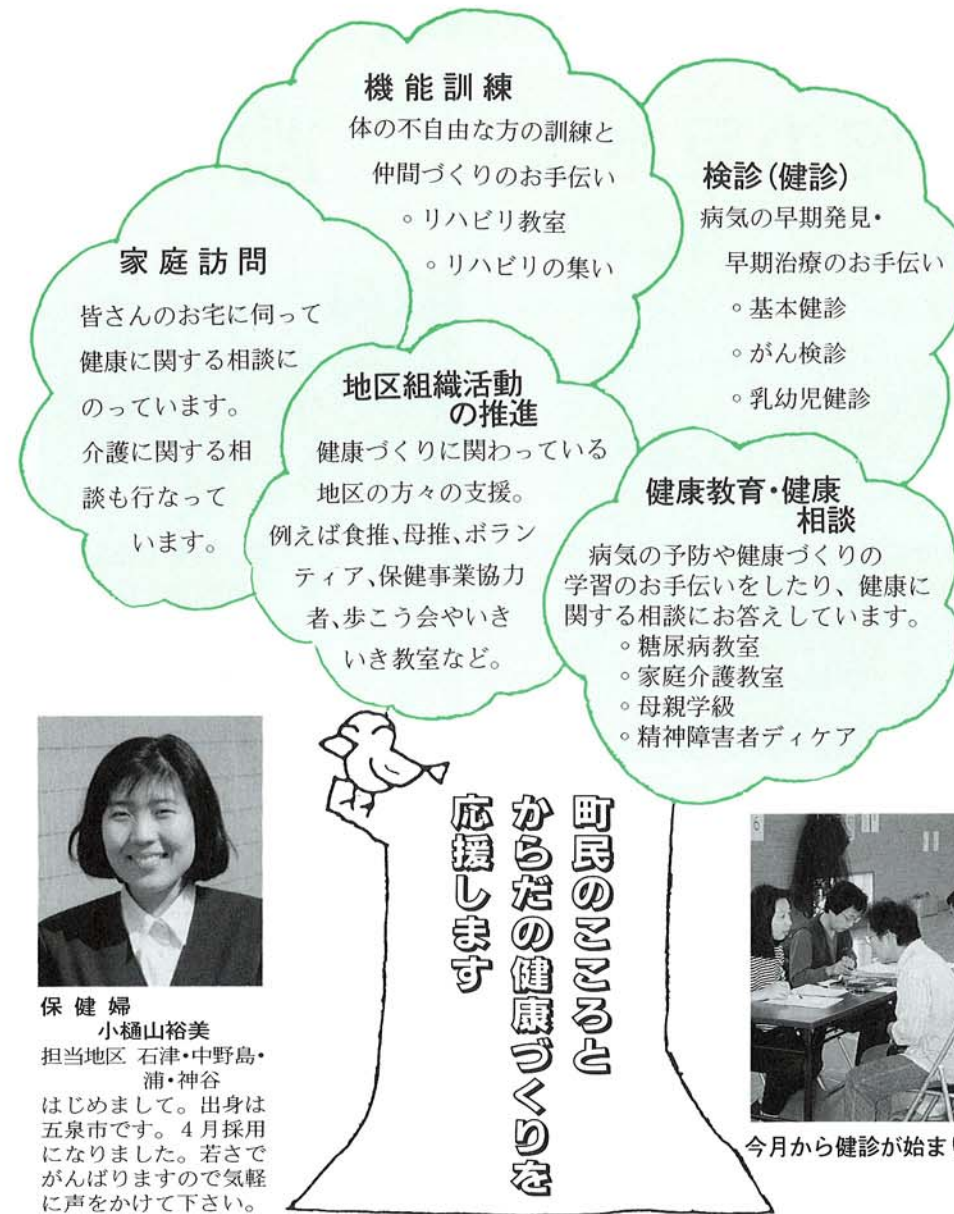 機能訓練
体の不自由な方の訓練と
仲間づくりのお手伝い
◦リハビリ教室
◦リハビリの集い
検診(健診)
病気の早期発見・
早期治療のお手伝い
◦基本健診
◦がん検診
◦乳幼児健診
家庭訪問
皆さんのお宅に伺って
健康に関する相談に
のっています。
介護に関する相
談も行なって
います。
地区組織活動
の推進
健康づくりに関わっている
地区の方々の支援。
例えば食推、母推、ボラン
ティア、保健事業協力
者、歩こう会やいき
いき教室など。
健康教育・健康
相談
病気の予防や健康づくりの
学習のお手伝いをしたり、健康に
関する相談にお答えしています。
◦糖尿病教室
◦家庭介護教室
◦母親学級
◦精神障害者ディケア
町民のこころと
からだの健康づくりを
応援します
保健婦
小樋山裕美
担当地区 石津・中野島・
浦・神谷
はじめまして。出身は
五泉市です。4月採用
になりました。若さで
がんばりますので気軽
に声をかけて下さい。
6
今月から健診が始ま